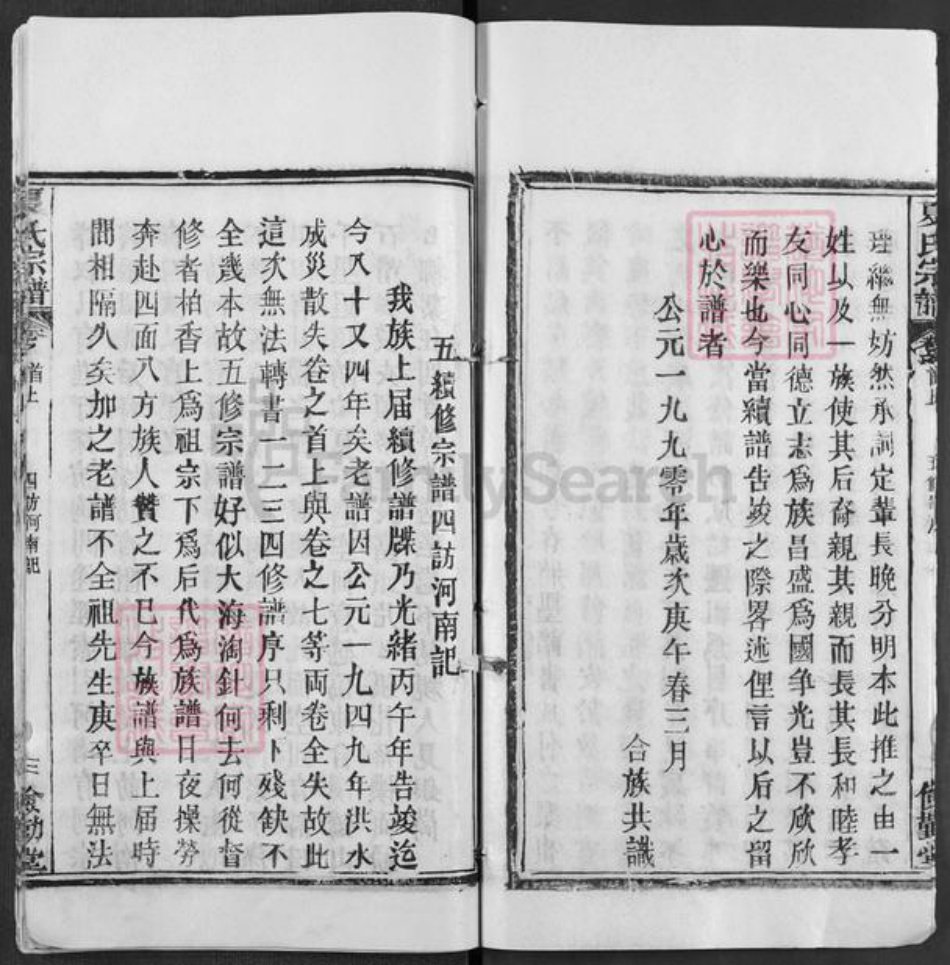 夏氏宗譜
理縂無妨然承詞定輩長晚分明本此推之由一
姓以及一族使其后裔親其親而長其長和睦孝
友同心同德立志為族昌盛爲國争光豈不欣欣
而樂也今當續譜告竣之際畧述俚言以后之留
心於譜者
公元一九九零年歲次庚午春三月
合族共識
五續修宗譜四訪河南記
我族上届續修譜牒乃光緒丙午年告竣迄
今八十又四年矣老譜因公元一九四九年洪水
成災散失卷之首上與卷之七等両卷全失故此
這次無法轉書一二三四修譜序只剩卜殘缺不
全幾本故五修宗譜好似大海淘針何去何從督
修者柏香上爲祖宗下爲后代爲族譜日夜操勞
奔赴四面八方族人贊之不已今族譜與上届時
間相隔久矣加之老譜不全祖先生庚卒日無法
夏氏宗譜
卷之首上
四訪河南記
儉勤堂
FamilySearch